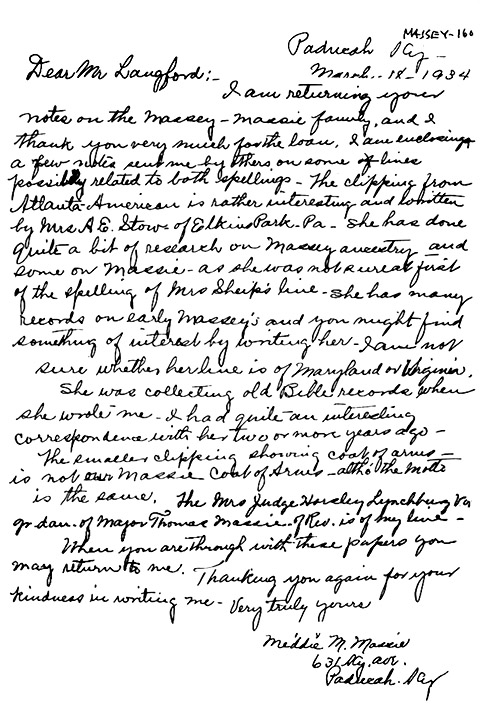 MASSEY-160
Paducah Ky -
March - 18 - 1934
Dear Mr Langford:-
I am returning your
notes on the Massey - Massie family, and I
thank you very much for the loan. I am enclosing
a few notes sent me by others on some of lines
possibly related to both spellings - The clipping from
Atlanta American is rather interesting and written
by Mrs A.E. Stows of Elkins Park - Pa - She has done
quite a bit of research on Massey ancestry and
some on Massie - as she was not sure at first
of the spelling of Mrs Sheip's line - She has many
records on early Massey's and you might find
something of interest by writing her - I am not
sure whether her line is of Maryland or Virginia.
She was collecting old Bible records when
she wrote me - I had quite an interesting
correspondence with her two or more years ago -
The smaller clipping showing coat of arms -
is not our Massie Coat of Arms - altho' the Motto
is the same. The Mrs Judge Horsley Lynchburg Va
gr dau. of Major Thomas Massie of Rev. is of my line -
When you are through with these papers you
may return to me. Thanking you again for your
kindness in writing me - Very truly yours
Meddie M. Massie
631 Ky. ave.
Paducah. Ky